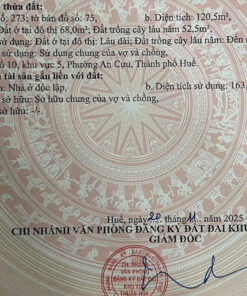 thửa đất:
số: 273; tờ bản đồ số: 75, b. Diện tích: 120,5m²,
Đất ở tại đô thị 68,0m²; Đất trồng cây lâu năm 52.5m².
sử dụng: Đất ở tại đô thị: Lâu dài; Đất trồng cây lâu năm: Đến n
sử dụng: Sử dụng chung của vợ và chồng.
ố 10, khu vực 5, Phường An Cựu, Thành phố Huế.
tài sản gắn liền với đất:
n: Nhà ở độc lập, b. Diện tích sử dụng: 163,
sở hữu: Sở hữu chung của vợ và chồng,
sở hữu: -/-.
Huế, ngày 20 tháng 11 năm 2025
CHI NHÁNH VĂN PHÒNG ĐĂNG KÝ ĐẤT ĐAI KHU
GIÁM ĐỐC
CHI NHÁNH
VĂN PHÒNG
ĐĂNG KÝ
ĐẤT ĐAI
KHU VỰC
THUẬN HÓA